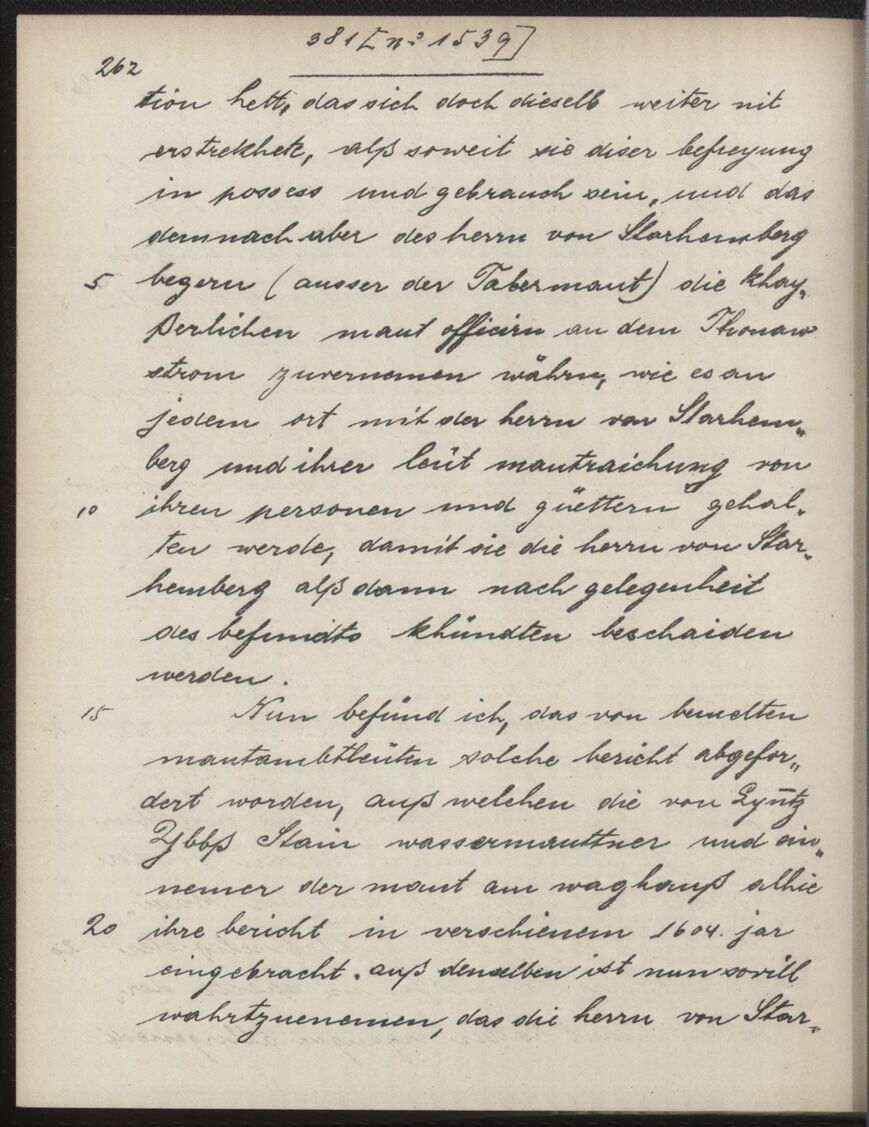 381 [nº 1539]
262
tion hett, das sich doch dieselb weiter nit
erstrekhet, alß soweit sie diser befreyung
in possess und gebrauch sein, und das
demnach aber des herrn von Starhemberg
5 begern (ausser der Tabermaut) die khay„
ßerlichen maut officirn an dem Thonaw
strom zuvernemen währn, wie es an
jedem ort mit der herrn von Starhem„
berg und ihrer leüt mautraichung von
10 ihren personen und güettern gehal„
ten werde, damit sie die herrn von Star„
hemberg alß dann nach gelegenheit
des befundts khündten beschaiden
werden.
15 Nun befünd ich, das von bemelten
mautambtleüten solche bericht abgefor„
dert worden, auß welchen die von Lyntz
Ybbß Stain wassermauttner und ein„
nemer der maut am waghauß alhie
20 ihre bericht in verschienem 1604. jar
eingebracht. auß denselben ist nun sovill
wahrtzuenemen, das die herrn von Star„